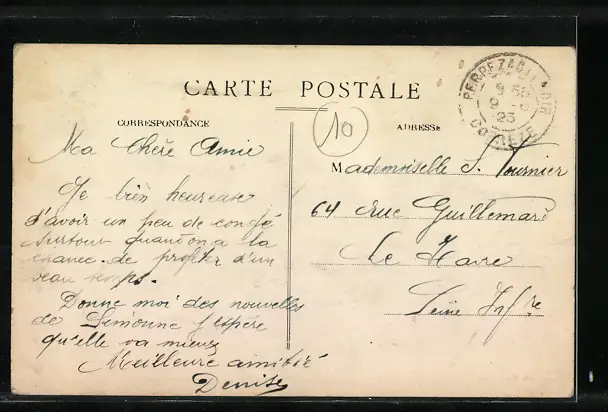 CARTE POSTALE
CORRESPONDANCE
10
ADRESSE
PERPEZAC
9 55
9
23
CORREZE
Ma Chère Amie
Je bien heureuse
d'avoir un peu de congé
surtout quand on a la
chance de profiter d'un
beau temps.
Donne moi des nouvelles
de Simonne j'espère
qu'elle va mieux
Meilleure amitié
Denise
Mademoiselle S. Tournier
64 rue Guillemard
Le Havre
Seine Infre